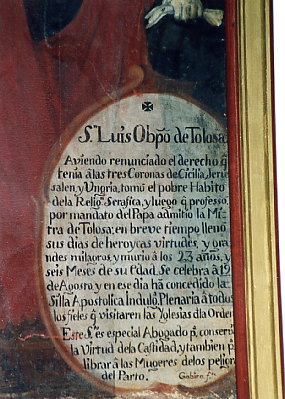 ✠
Sⁿ Luis Obp̃o de Tolosa
Aviendo renunciado el derecho q̃
tenia â las tres Coronas de Cicilia, Jeru
salen, y Ungria, tomó el pobre Habito
de la Religⁿ Serafica, y luego q̃ professo,
por mandato del Papa admitio la Mi
tra de Tolosa; en breve tiempo lleno
sus dias de heroycas virtudes, y gran
des milagros, y murio a los 23 años, y
seis Meses de su Edad. Se celebra à 19
de Agosto, y en ese dia hà concedido la
Silla Apostolica Indulg. Plenaria â todos
los fieles q̃ visitaren las Yglesias dla Orden
Este Sⁿ es especial Abogado pª conserv
la Virtud dela Castidad, y tambien pª
librar â las Mugeres delos peligros
del Parto.